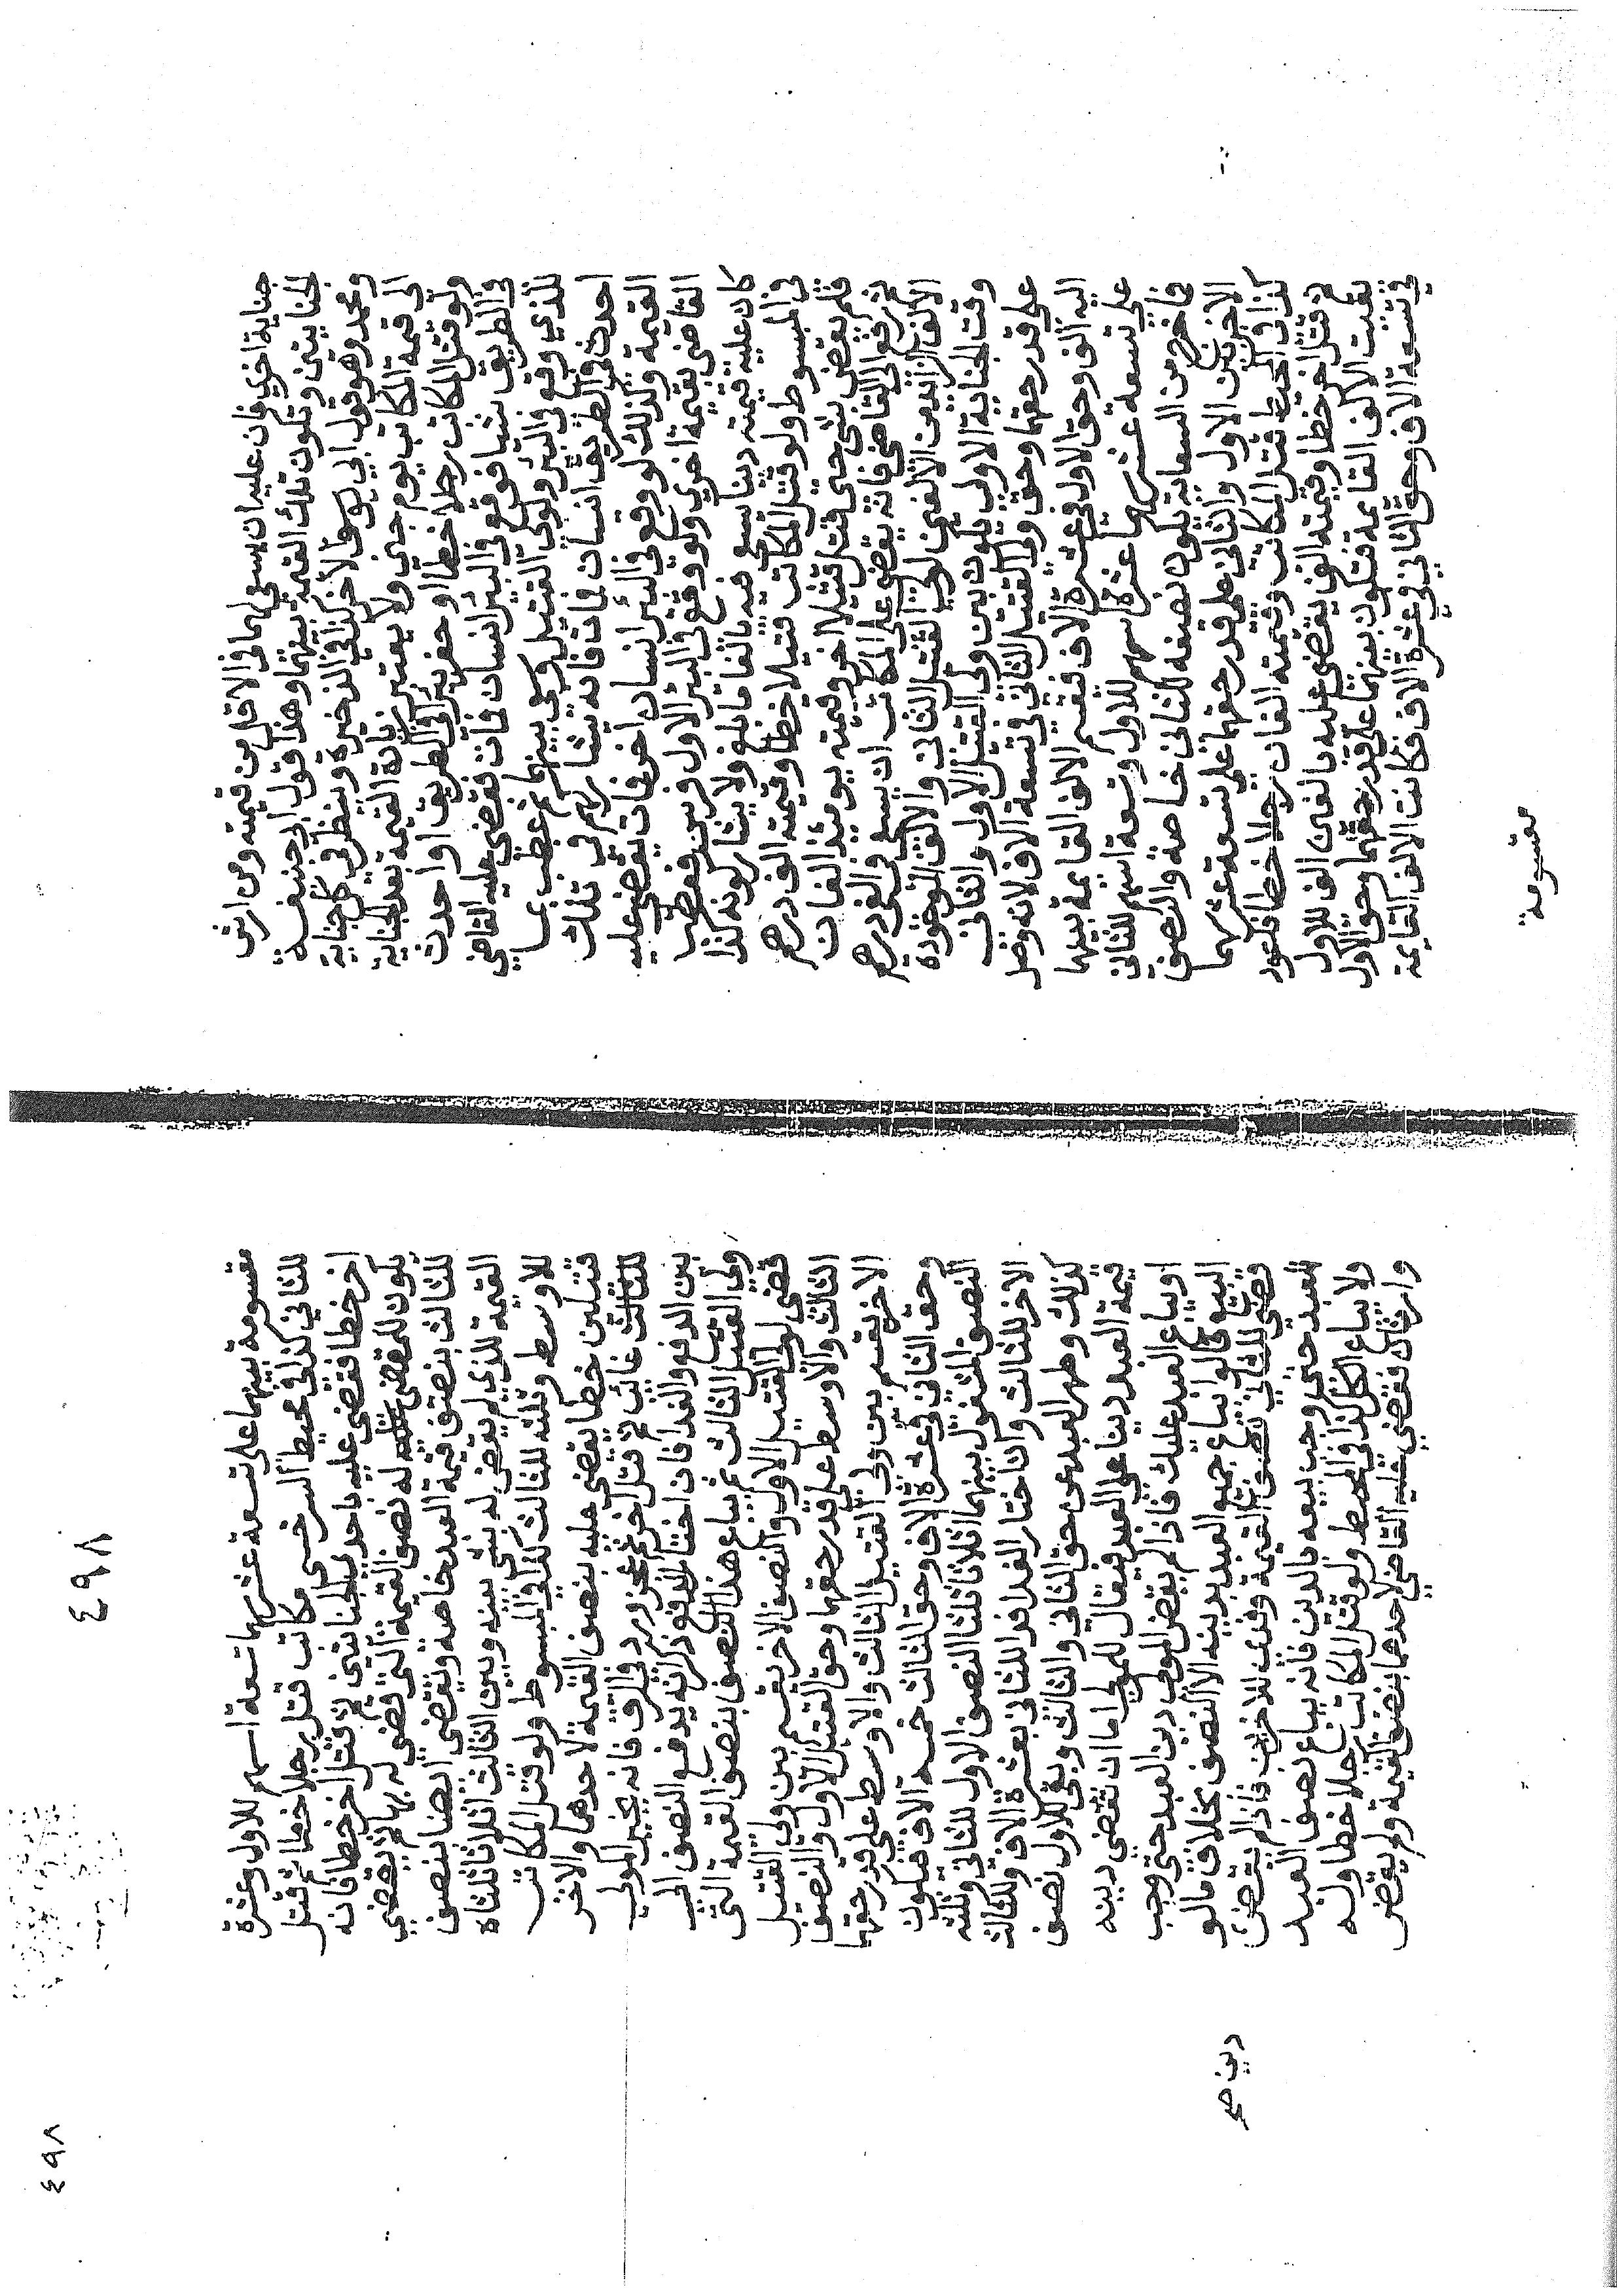 جناية اخرى فان عليه ان يسعى لهما في الاقل من قيمته ومن ارش
الجنايتين وتكون تلك القيمة بينهما وهذا قول ابي حنيفة
ومحمد وهو قول ابي يوسف الآخر كذا في الذخيرة وينظر في كل جناية
الى قيمة المكاتب يوم جنى ولا يعتبر زيادة القيمة بعد الجناية
ولو قتل المكاتب رجلا خطأ او حفر بئرا في الطريق او احدث
في الطريق شيئا فوقع في البئر انسان فمات فقضى عليه القاضي
للذي وقع في البئر ولولي القتيل وسعى بينهم ثم عطب بما
احدث في الطريق انسان فمات فانه يشاركهم في تلك
القيمة وكذلك لو وقع في البئر انسان اخر فمات يقضى عليه
القاضي بقيمة اخرى ولو وقع في البئر الاول فرس فعطبها
كان عليه قيمته دينا يسعى فيه بالغا ما بلغ ولا يشاركونه كذا
في المبسوط ولو قتل المكاتب قتيلا خطأ وقيمته الف درهم
فلم يقض بشيء حتى قتل قتيلا اخر وقيمته يومئذ الفان
ثم رفع الى القاضي فانه يقضى على المكاتب ان يسعى في الفي درهم
الالف الزايد من الالفين لولي القتيل الثاني والالف الموجودة
وقت الجناية الاولى يكون بين ولي القتيل الاول والثاني
على قدر حقهما وحق ولي القتيل الثاني في تسعة الاف لانه وصل
اليه الف وحق الاول في عشرة الاف فيقسم الالف القائمة بينهما
على تسعة عشر سهما عشرة اسهم للاول وتسعة اسهم للثاني
فما خرج من السعاية يكون نصفه للثاني خاصة والنصف
الاخر بين الاول والثاني على قدر حقهما على تسعة عشر سهما
كذا في المحيط قتل المكاتب وقيمته الفان رجلا خطأ فلعور
ثم قتل اخر خطأ وقيمته الف يقضى عليه بالفين الف للاول
بقيت الالف القائمة فتكون بينهما على قدر حقهما وحق الاول
في تسعة الاف وحق الثاني في عشرة الاف فكانت الالف القائمة
مقسومة
٤٩٨
مقسومة بينهما على تسعة عشر سهما تسعة اسهم للاول وعشرة
للثاني كذا في محيط السرخسي مكاتب قتل رجلا خطأ ثم قتل
اخر خطأ فقضى عليه باحدى الجنايتين ثم قتل اخر خطأ فانه
يكون للمقضى له نصف القيمة التي قضى له بها ثم يقضي
للثالث بنصف قيمة العبد خاصة ويقضى ايضا بنصف
القيمة للذي لم يقض له بشيء بينه وبين الثالث اثلاثا ثلثاه
للاوسط وثلثه للثالث كذا في المبسوط ولو قتل المكاتب
قتيلين خطأ يقضى عليه بنصف القيمة لاحدهما والاخر
غائب ثم قتل اخر ثم عجز ورد في الرق فانه يخير المولى
بين الدفع والفداء فان اختار الدفع ذكر انه يدفع النصف الى
ولي القتيل الثالث ثم يباع هذا النصف بنصف القيمة التي
قضى لولي القتيل الاول والنصف الاخر يقسم بين ولي القتيل
الثالث والاوسط على قدر حقهما وحق القتيل الاول والنصف
الاخر يقسم بين ولي القتيل الثالث والاوسط على قدر حقهما
وحق الثاني في عشرة الاف وحق الثالث خمسة الاف فيكون
النصف المشغول بينهما اثلاثا ثلثا النصف الاول للثاني وثلثه
الاخر للثالث وان اختار الفداء فدا للثاني بعشرة الاف وللثالث
كذلك وطهر العبد عن حق الثاني والثالث وبقي للاول نصف
قيمة العبد دينا على العبد فيقال للمولى اما ان تقضي دينه
او يباع العبد عليك فاذا لم يقض المولى دين العبد حتى وجب
البيع قالوا يباع جميع العبد بدينه الا النصف بخلاف ما لو
قضي للثاني بنصف القيمة وفدى للاخرين فاذا لم يقض
للعبد حتى وجب بيعه بالدين فانه يباع نصف العبد
ولا يباع الكل كذا في المحيط ولو قتل المكاتب رجلا خطأ وله
وارثان فقضى عليه القاضي لاحدهما بنصف القيمة ولم يقض
دين صح
٤٩٨